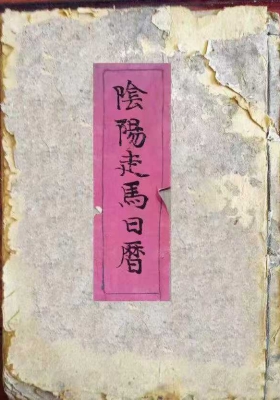 陰陽走馬日曆